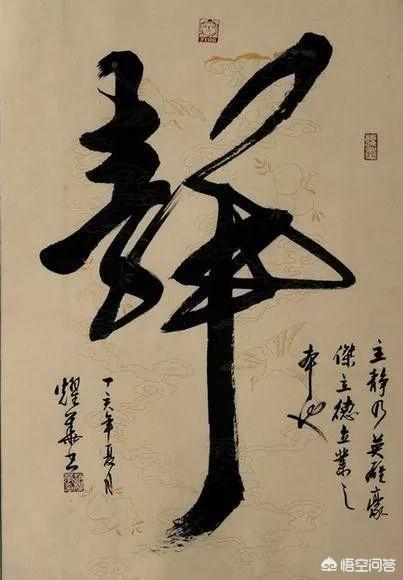 静
主静乃英雄豪
傑立德立業之
本也
丁亥年夏月
耀華书
悟空问答